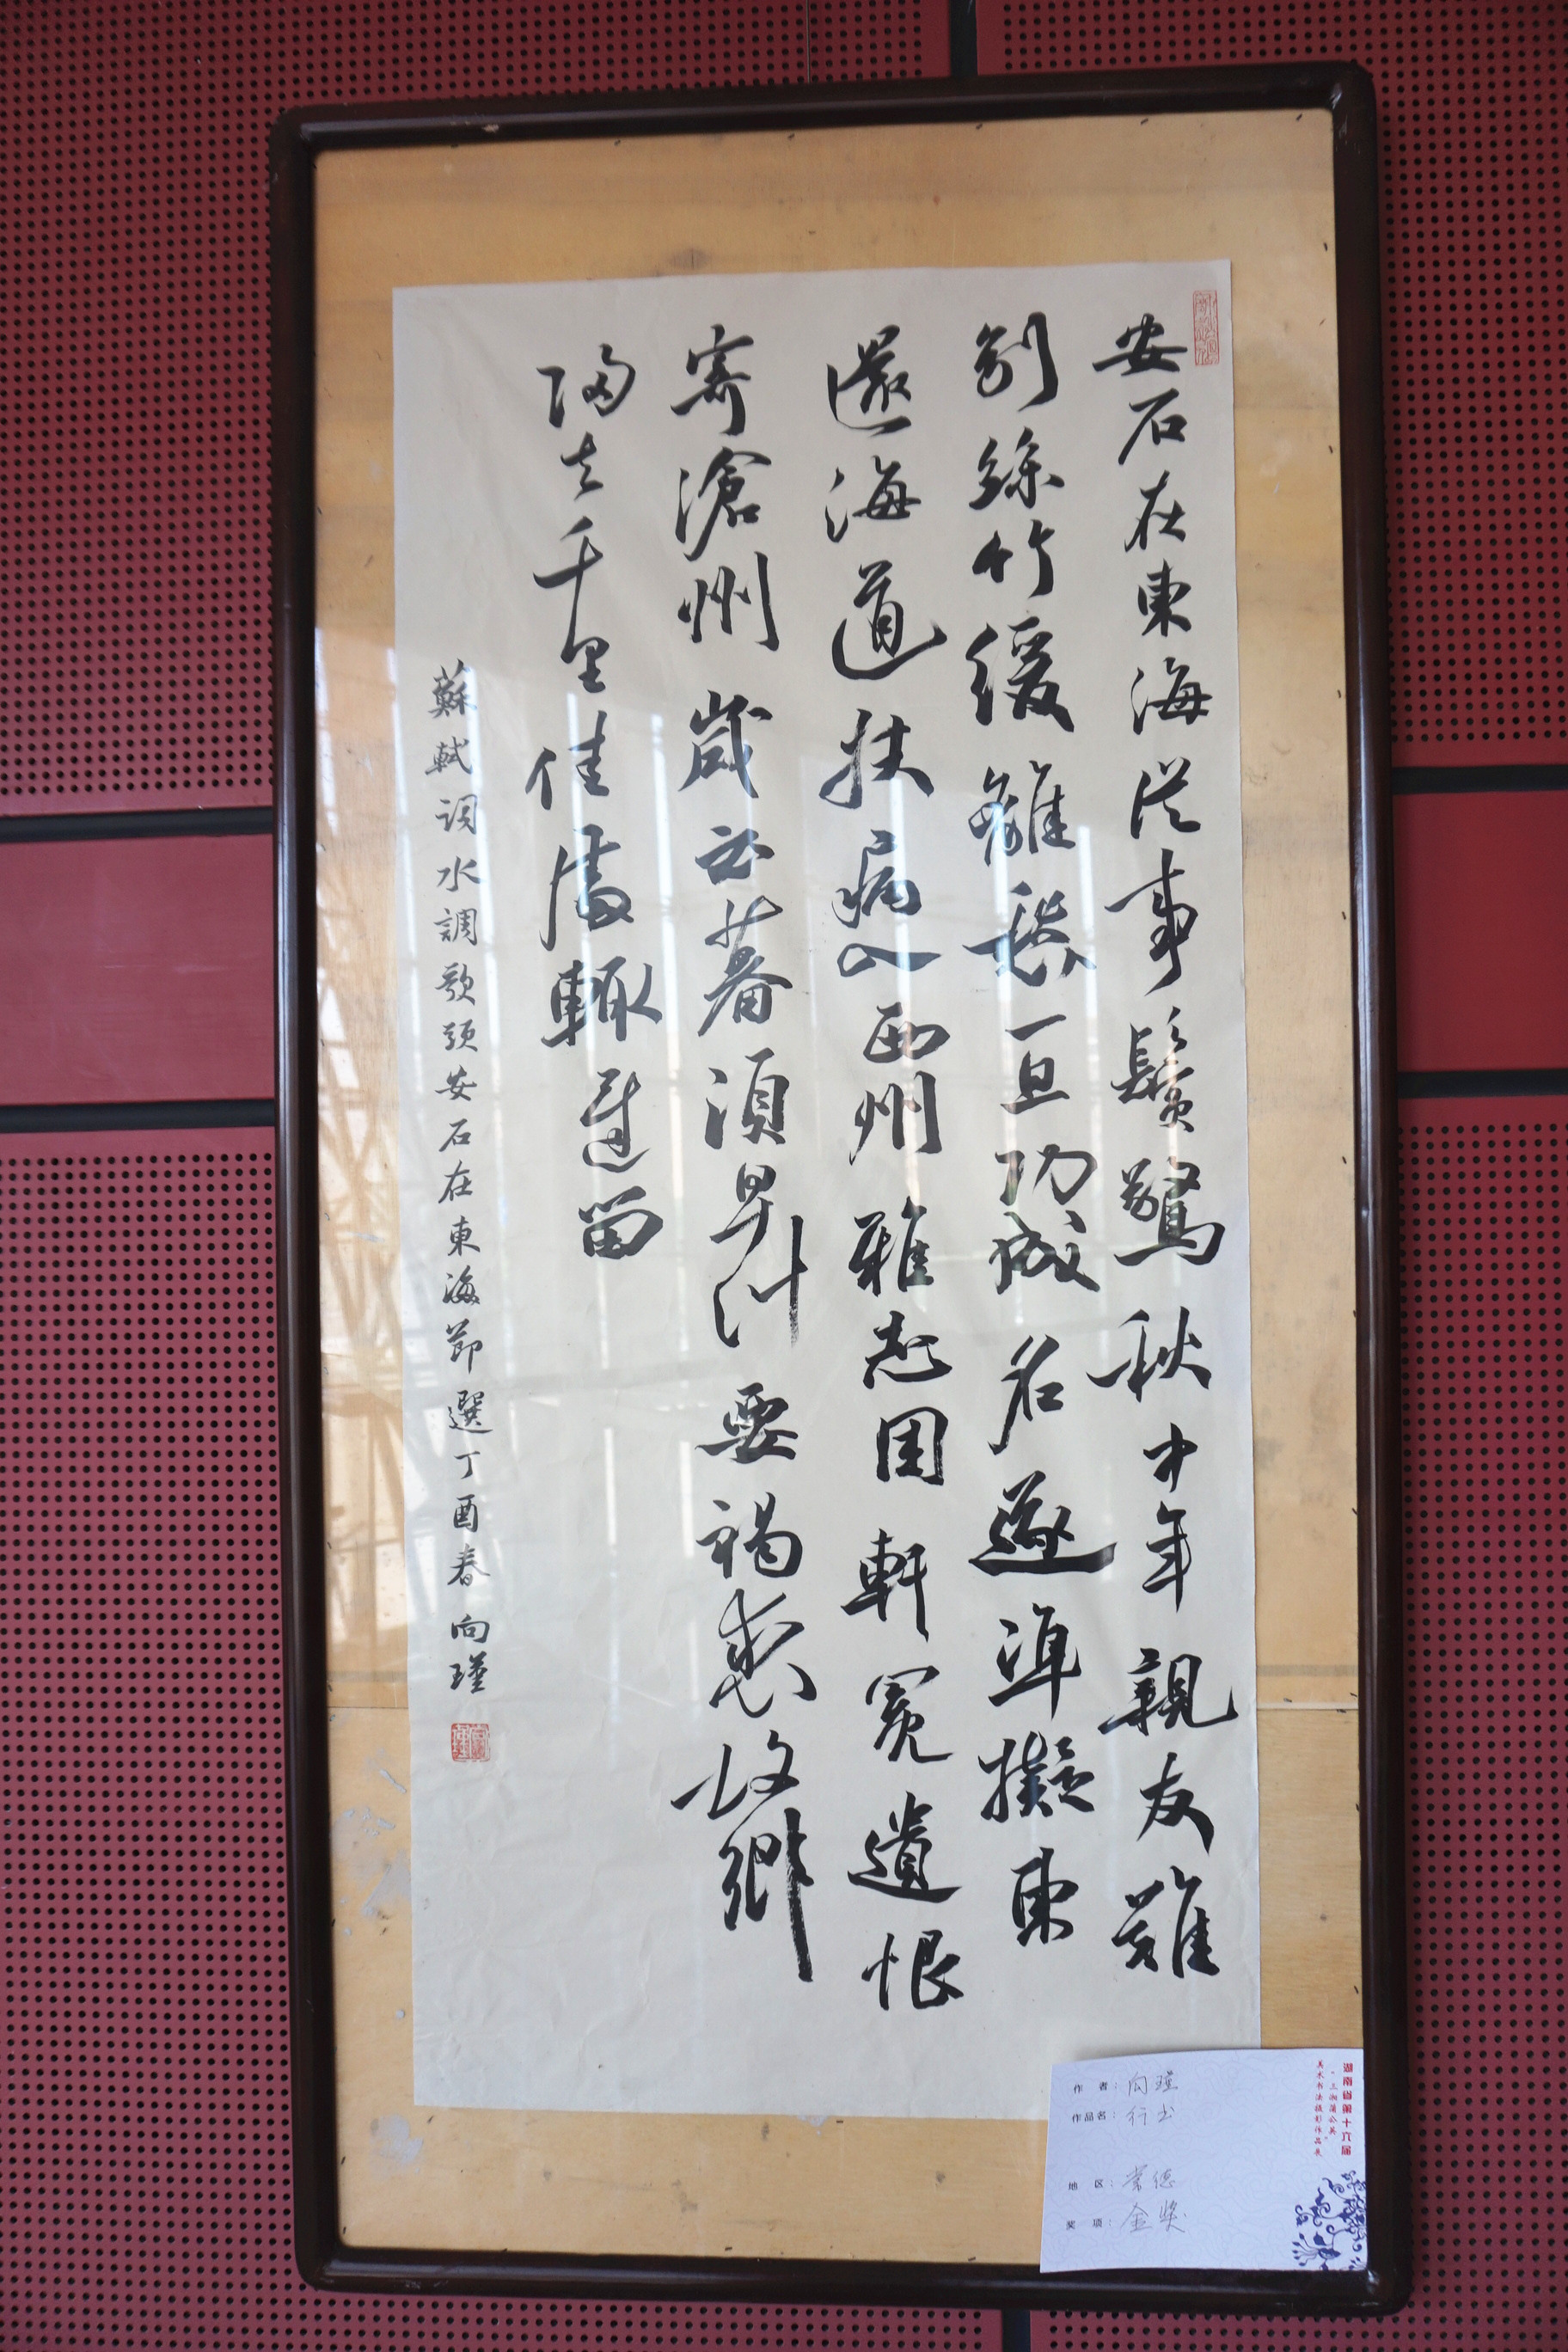 安石在東海從事鬢驚秋中年親友難
別絲竹緩離愁一旦功成名遂準擬東
還海道扶病入西州雅志困軒冕遺恨
寄滄州歲云暮須早計要褐裘故鄉
歸去千里佳處輒遲留
蘇軾詞水調歌頭安石在東海節選丁酉春向瑾
湖南省第十六届
“三湘蒲公英”
美术书法摄影作品展
作者：向瑾
作品名：行书
地区：常德
奖项：金奖